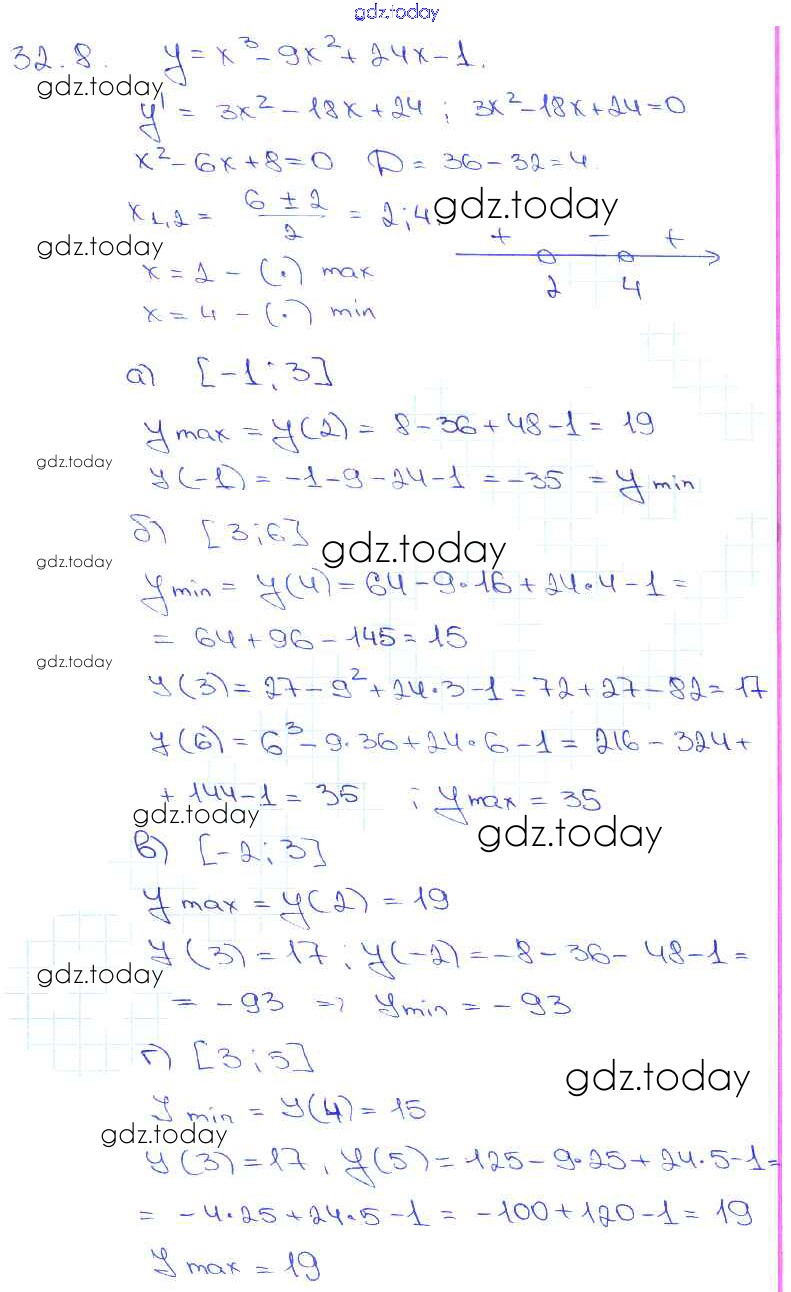 gdz.today
32.8. y = x³ - 9x² + 24x - 1.
gdz.today
y' = 3x² - 18x + 24 ; 3x² - 18x + 24 = 0
x² - 6x + 8 = 0 D = 36 - 32 = 4.
x₁,₂ = (6 ± 2)/2 = 2; 4. gdz.today
gdz.today
+ - +
x = 2 - (·) max
2 4
x = 4 - (·) min
а) [-1; 3]
y max = y(2) = 8 - 36 + 48 - 1 = 19
gdz.today
y(-1) = -1 - 9 - 24 - 1 = -35 = y min
б) [3; 6]
gdz.today
gdz.today
y min = y(4) = 64 - 9·16 + 24·4 - 1 =
= 64 + 96 - 145 = 15
gdz.today
y(3) = 27 - 9² + 24·3 - 1 = 72 + 27 - 82 = 17
y(6) = 6³ - 9·36 + 24·6 - 1 = 216 - 324 +
+ 144 - 1 = 35 ; y max = 35
gdz.today
gdz.today
в) [-2; 3]
y max = y(2) = 19
y(3) = 17 ; y(-2) = -8 - 36 - 48 - 1 =
gdz.today
= -93 => y min = -93
г) [3; 5]
gdz.today
y min = y(4) = 15
gdz.today
y(3) = 17, y(5) = 125 - 9·25 + 24·5 - 1 =
= -4·25 + 24·5 - 1 = -100 + 120 - 1 = 19
y max = 19